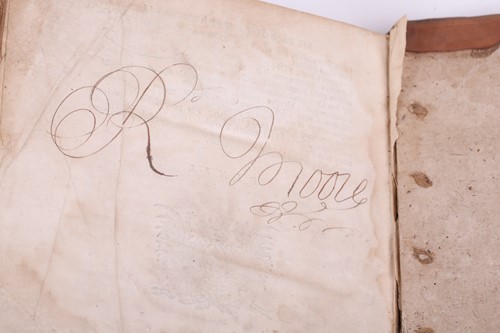 R Moore